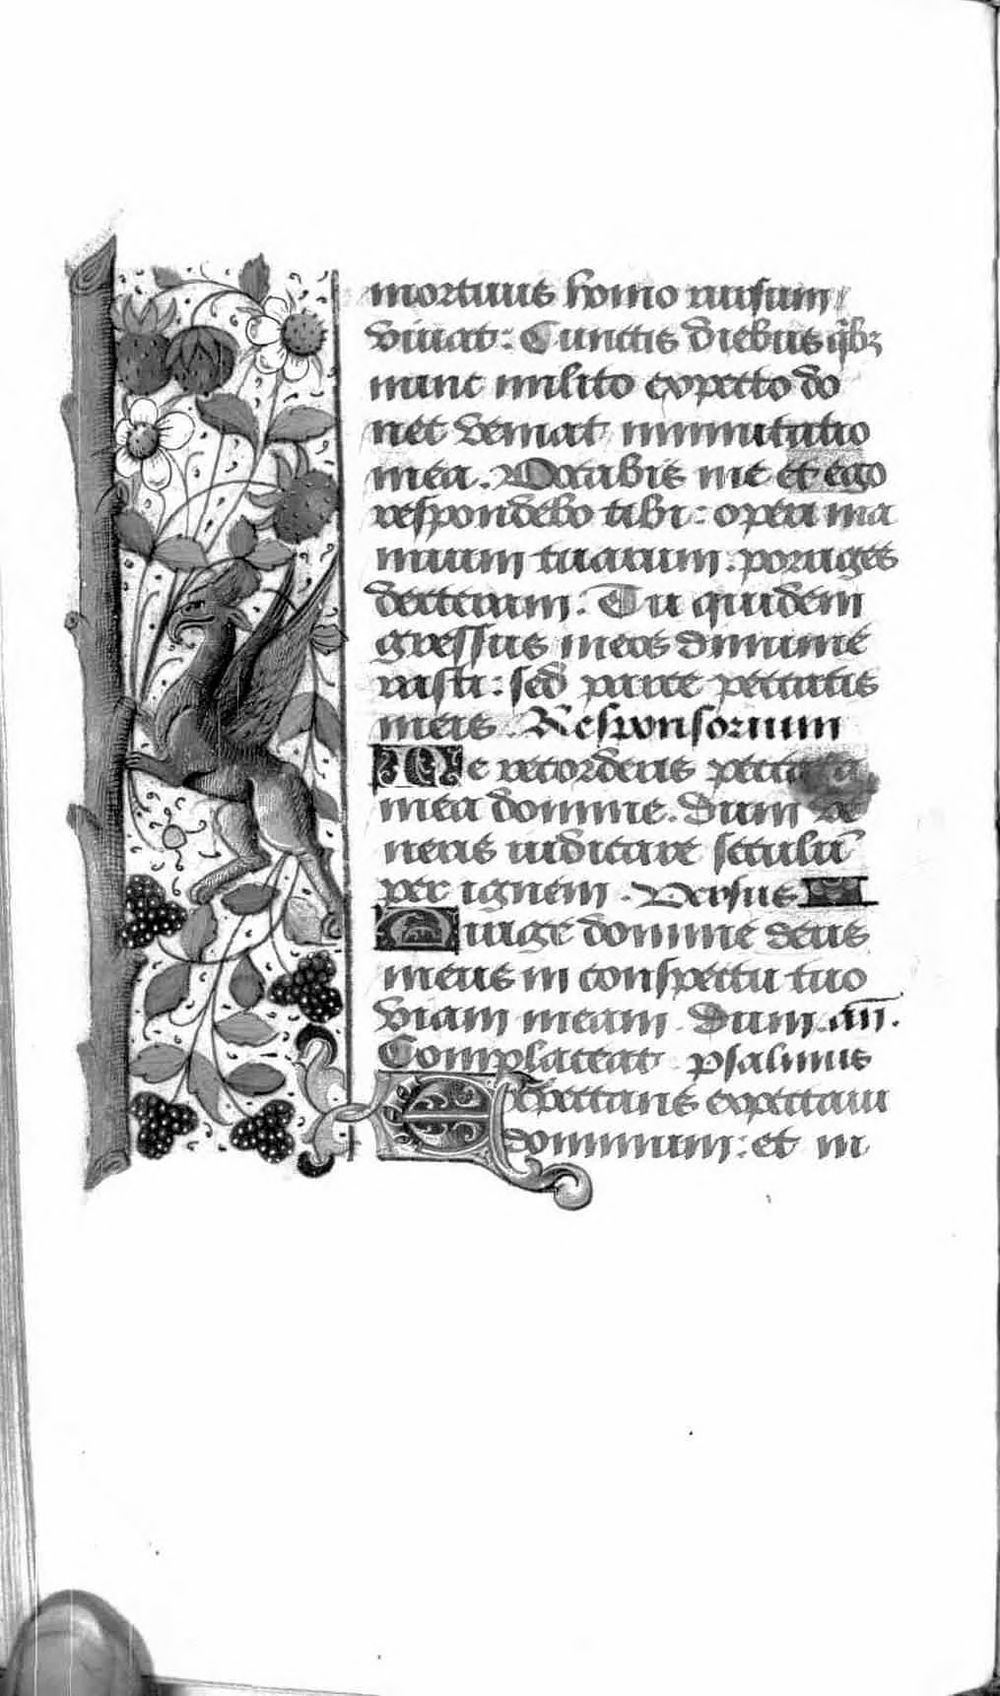 mortuus homo rursum
vivat: Cunctis diebus q̄bꝫ
nunc milito expecto do
nec veniat immutatio
mea. Vocabis me et ego
respondebo tibi: operi ma
nuum tuarum porriges
dexteram: Tu quidem
gressus meos dinume
rasti: sed parce peccatis
meis. Responsorium
Ne recorderis peccata
mea domine. dum ve
neris iudicare seculū
per ignem. Versus
Dirige domine deus
meus in conspectu tuo
viam meam. Dum. an̄.
Complaceat psalmus
Expectans expectavi
dominum: et in